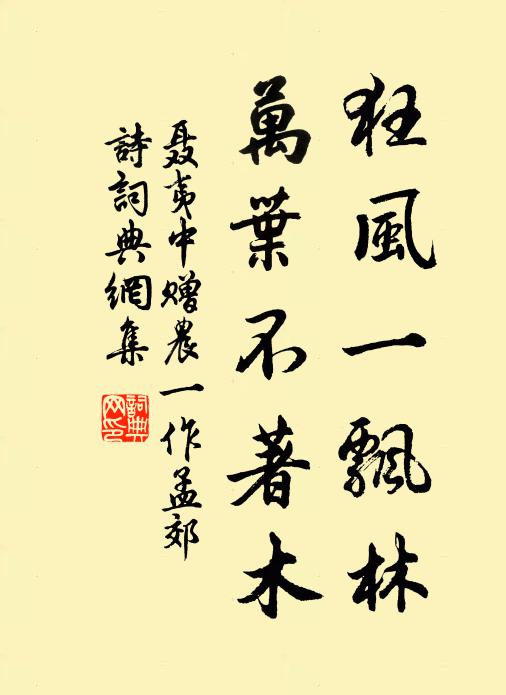 狂風一飄林
萬葉不著木
聂夷中赠農一作孟郊
詩詞典網集
詞典
网印